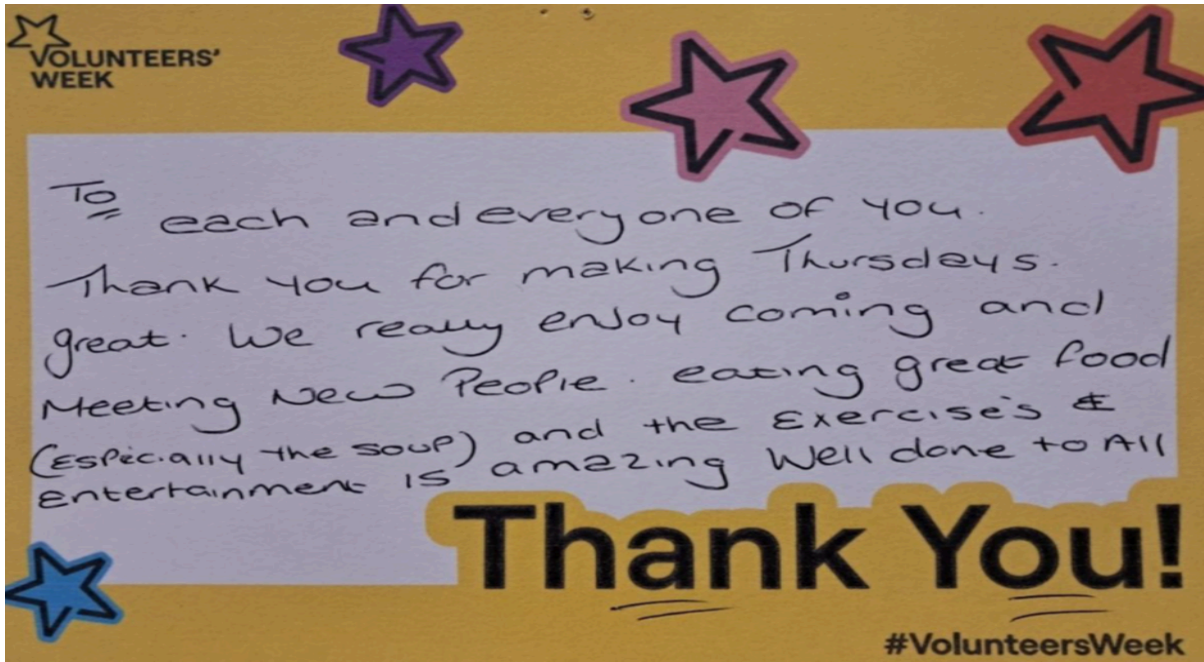 VOLUNTEERS'
WEEK
To
each and everyone of you.
Thank you for making Thursdays.
great. We really enjoy coming and
Meeting New People. eating great food
(Especially the soup) and the Exercise's &
Entertainment is amazing Well done to All
Thank You!
#VolunteersWeek